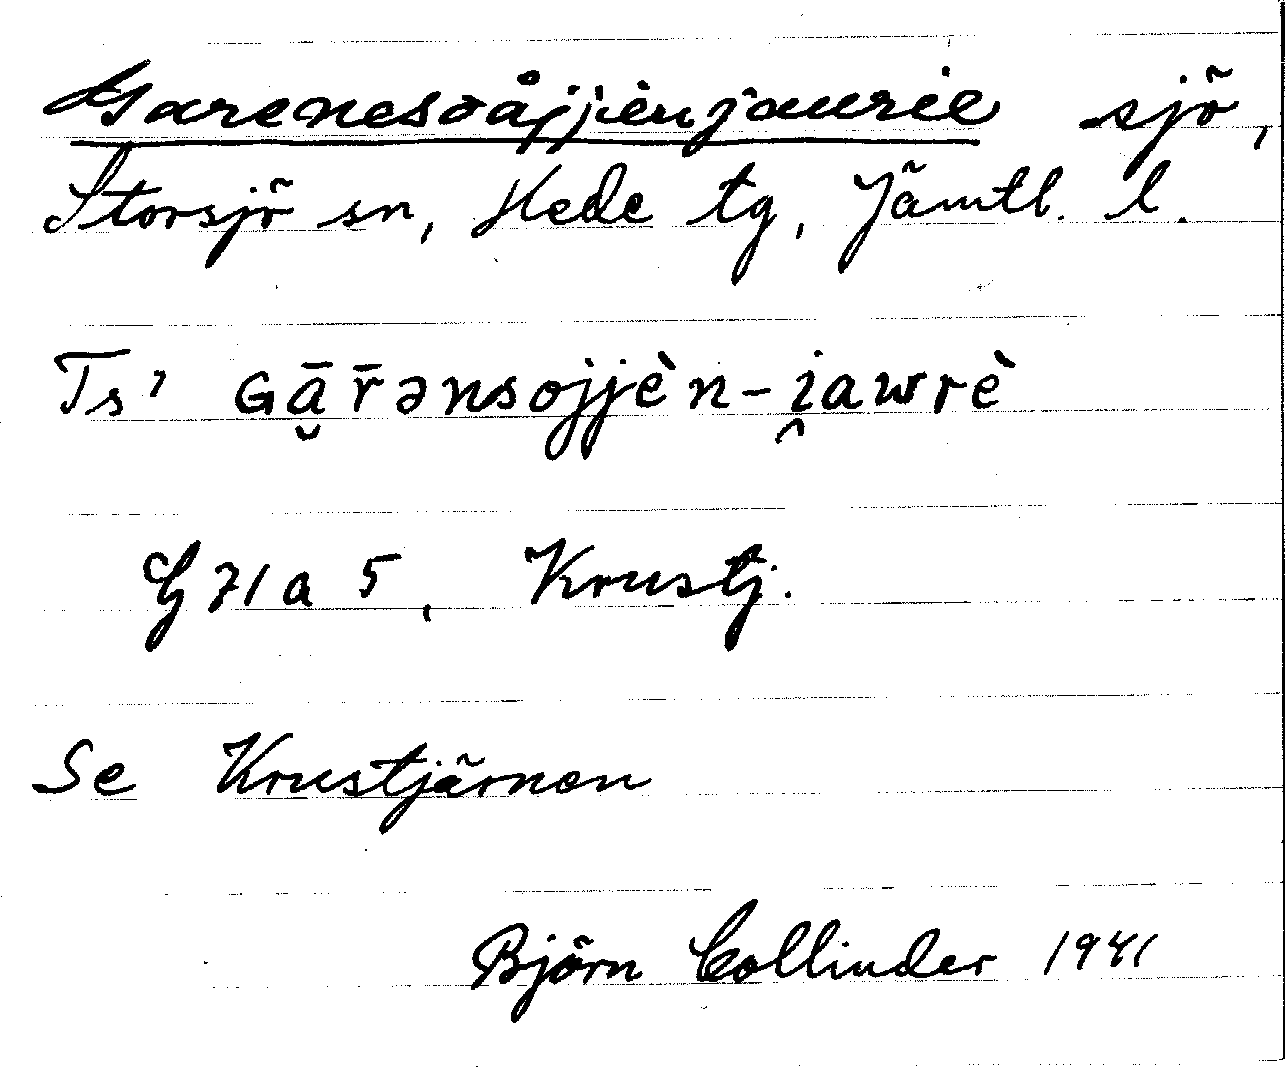 Garenesååjjienjaurie sjö,
Storsjö sn, Hede tg, Jämtl. l.
Ts' ɢā̮r̄ənsojjèn-i̯awrè
G 71 a 5, Krustj.
Se Krustjärnen
Björn Collinder 1941